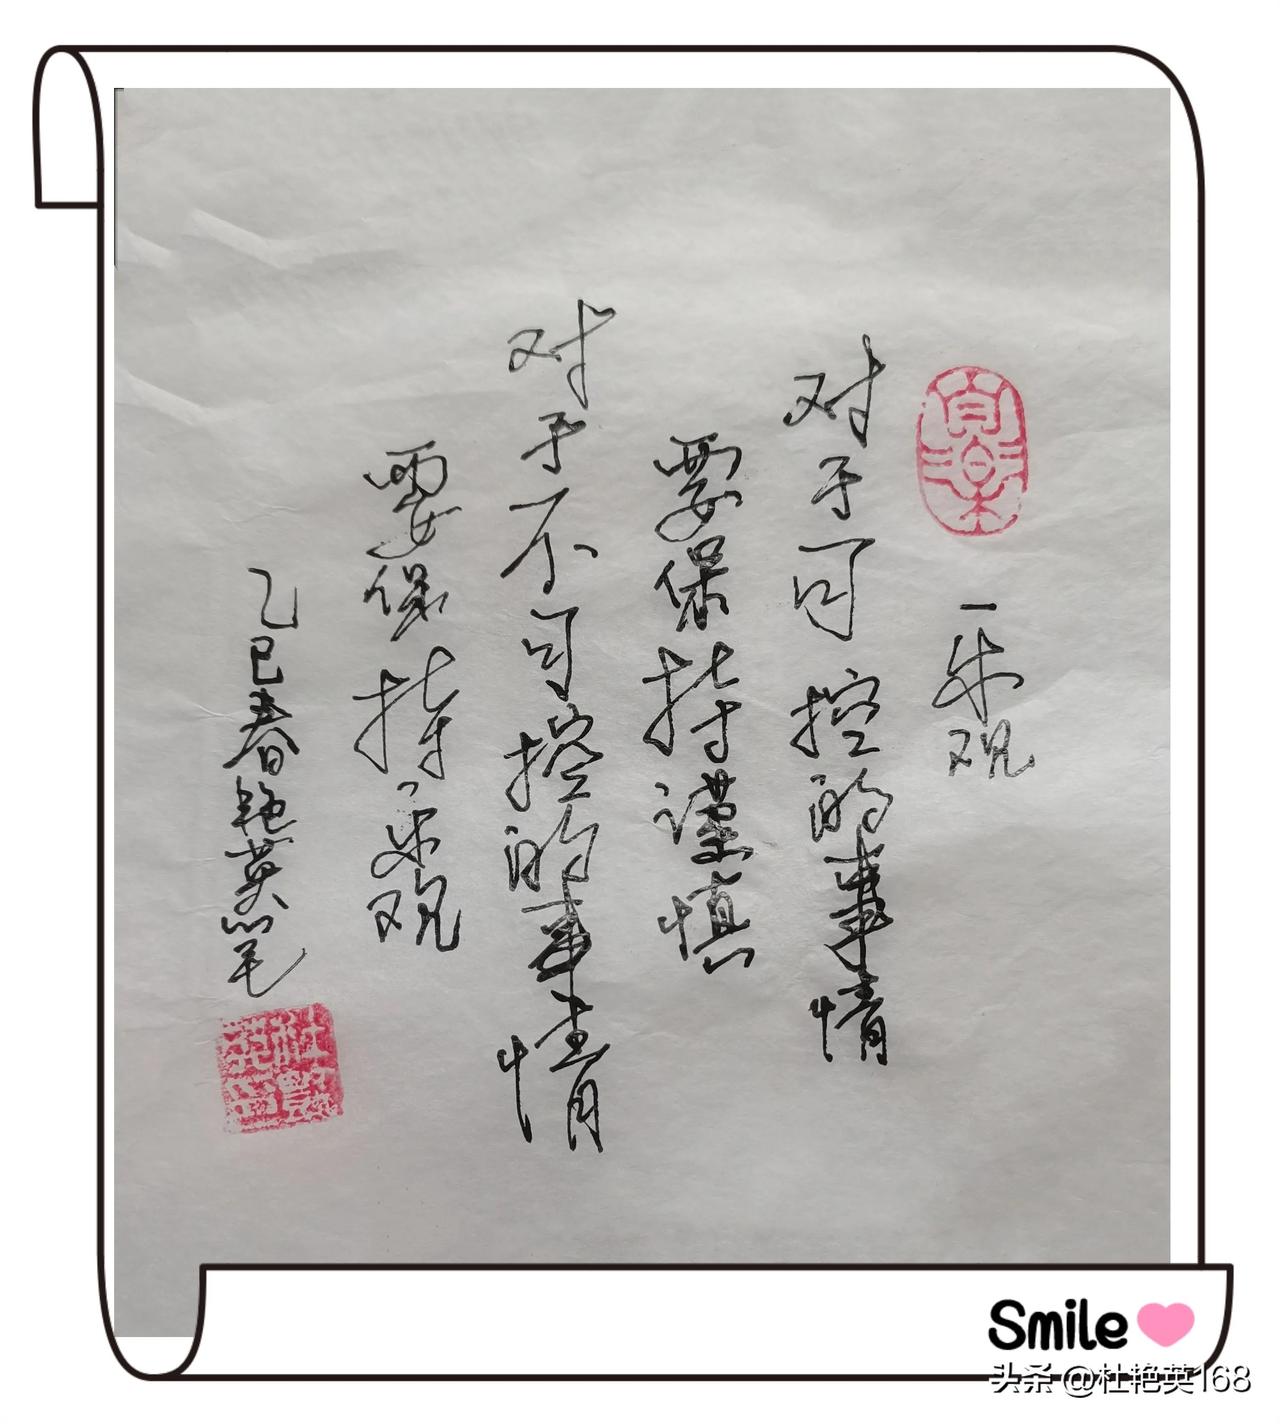 一乐观
对于可控的事情
要保持谨慎
对于不可控的事情
要保持乐观
乙巳春艳英笔
Smile
头条 @杜艳英168